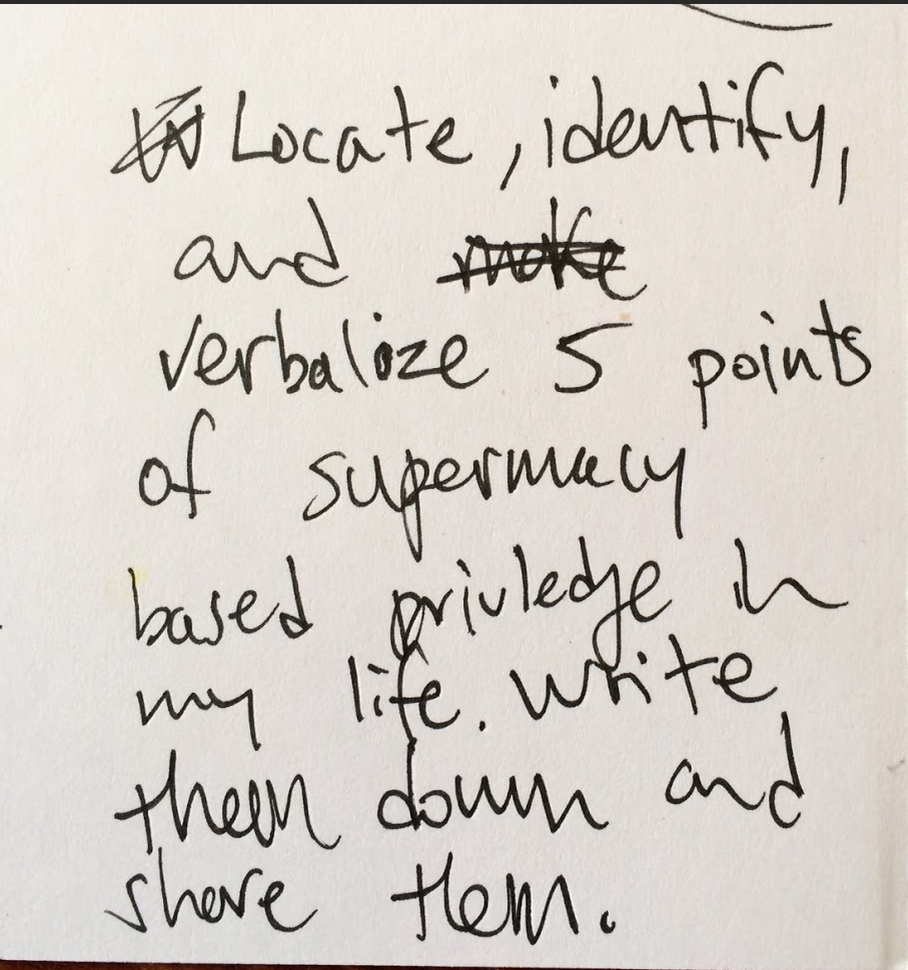 Locate, identify,
and make
verbalize 5 points
of supermacy
based privledge in
my life. Write
them down and
share them.